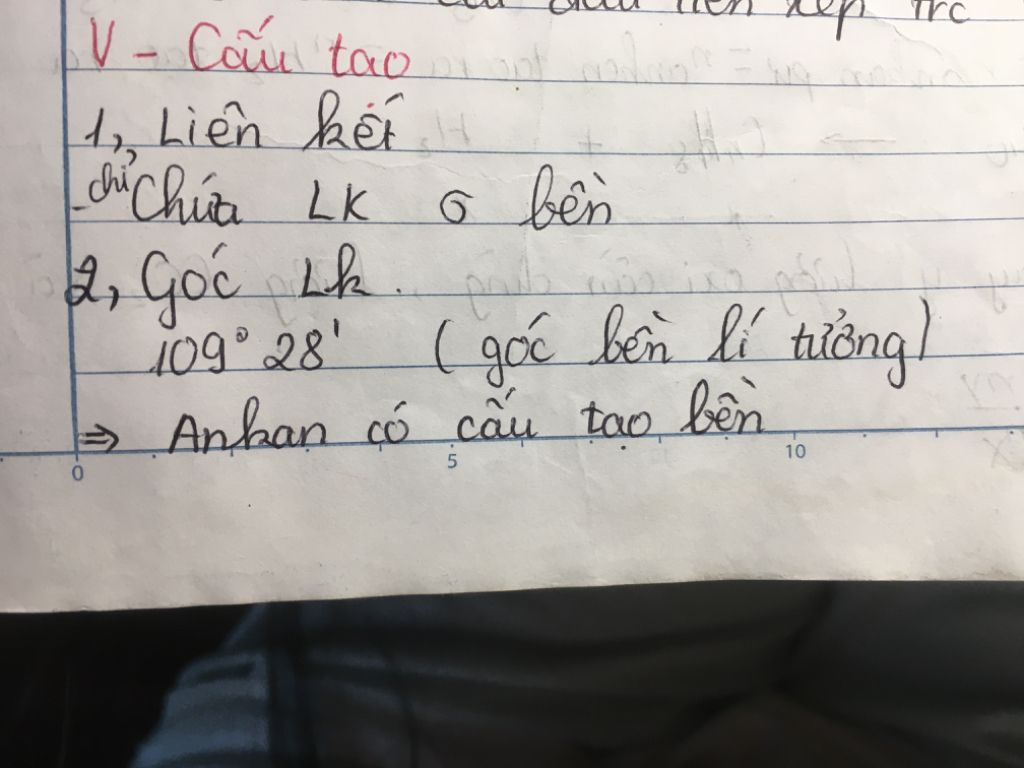 xếp trc
V - Cấu tạo
1, Liên kết
- chỉ Chứa LK σ bền
2, Góc Lk.
109° 28' (góc bền lí tưởng)
⇒ Ankan có cấu tạo bền
0 5 10